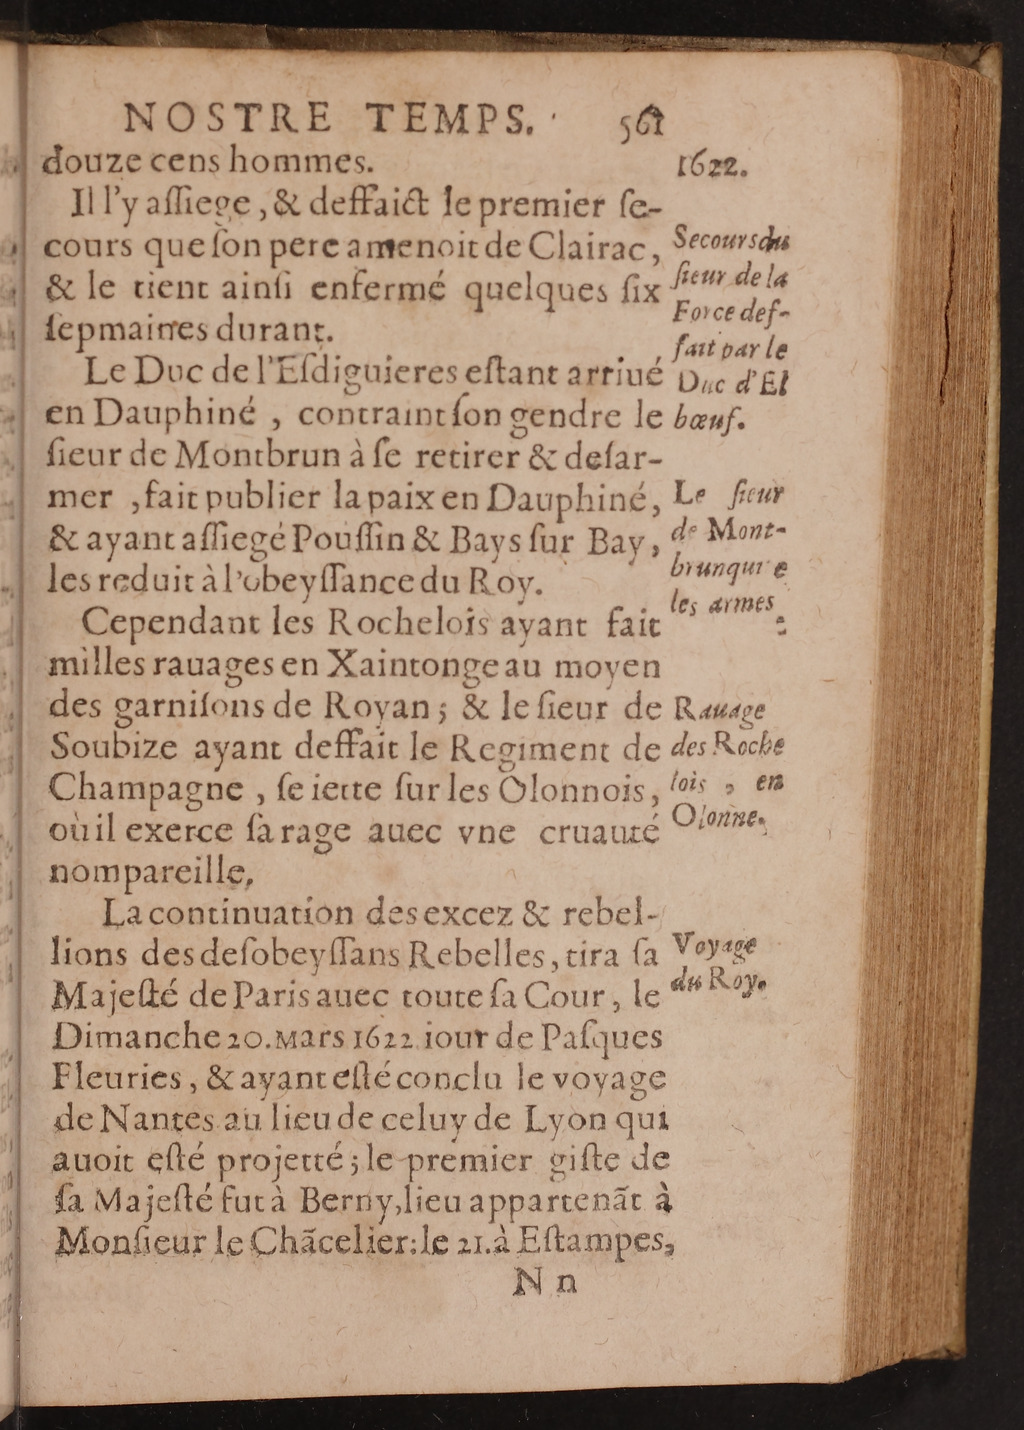 NOSTRE TEMPS. 561
douze cens hommes.
1622.
Il l'y aſſiege, & deffaict le premier ſe-
cours que ſon pere amenoit de Clairac,
& le tient ainſi enfermé quelques ſix
ſepmaines durant.
Secours du
ſieur de la
Force def-
fait par le
Duc d'El
bœuf.
Le Duc de l'Eſdiguieres eſtant arriué
en Dauphiné, contraint ſon gendre le
ſieur de Montbrun à ſe retirer & deſar-
mer, fait publier la paix en Dauphiné,
& ayant aſſiegé Pouſſin & Bays ſur Bay,
les reduit à l'obeyſſance du Roy.
Le ſieur
de Mont-
brun
les armes
Cependant les Rochelois ayant fait
milles rauages en Xaintonge au moyen
des garniſons de Royan; & le ſieur de
Soubize ayant deffait le Regiment de
Champagne, ſe iette ſur les Olonnois,
où il exerce ſa rage auec vne cruauté
nompareille,
Rauage
des Roche
lois, en
Olonne.
La continuation des excez & rebel-
lions des deſobeyſſans Rebelles, tira ſa
Majeſté de Paris auec toute ſa Cour, le
Dimanche 20. Mars 1622. iour de Paſques
Fleuries, & ayant eſté conclu le voyage
de Nantes au lieu de celuy de Lyon qui
auoit eſté projetté; le premier giſte de
ſa Majeſté fut à Berny, lieu appartenãt à
Monſieur le Chãcelier: le 21. à Eſtampes,
Voyage
du Roy.
N n